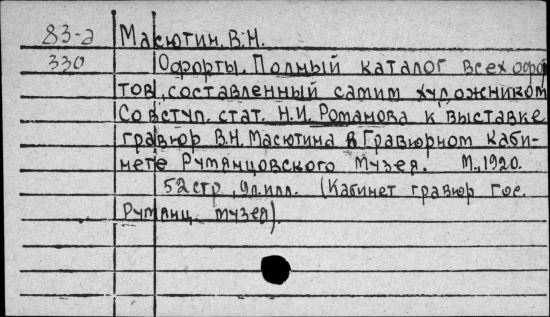 83-2 Масютин. В.Н.
330 Офорты. Полный каталог всех офор
тов, составленный самим художником
Со вступ. стат. Н.И. Романова к выставке
гравюр В.Н. Масютина в Гравюрном каби-
нете Румянцовского Музея. М., 1920.
52 стр., 9 л. илл. (Кабинет гравюр Гос.
Румянц. музея).